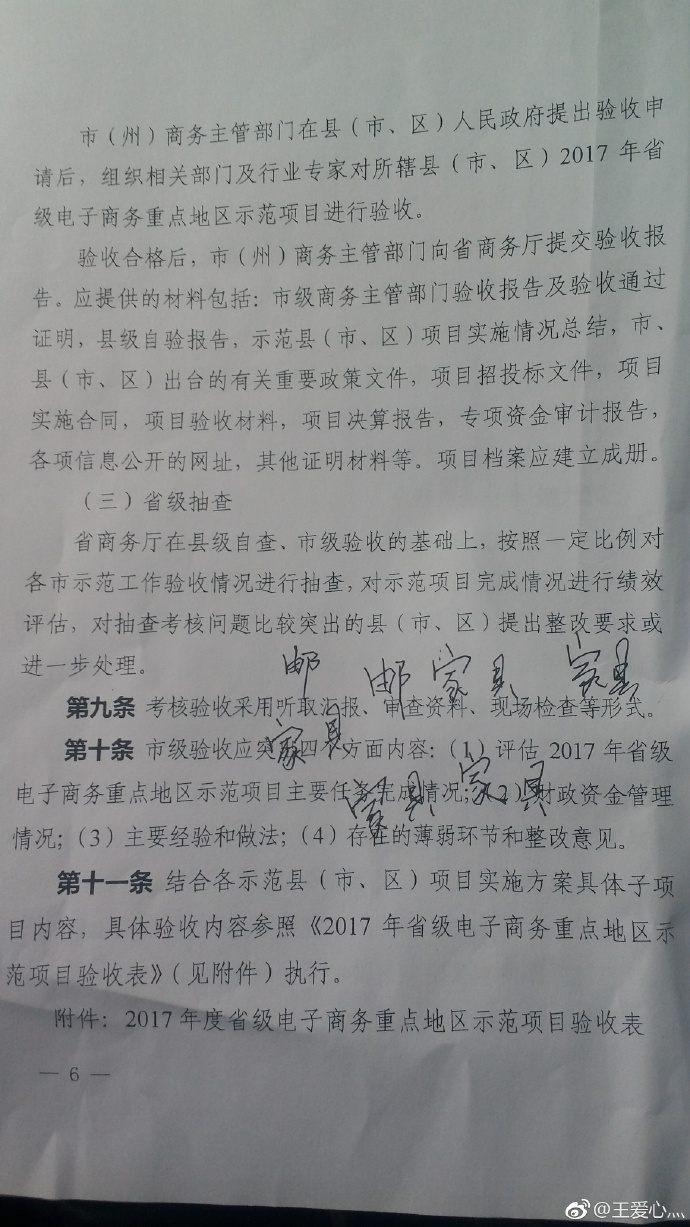 市（州）商务主管部门在县（市、区）人民政府提出验收申
请后，组织相关部门及行业专家对所辖县（市、区）2017 年省
级电子商务重点地区示范项目进行验收。
验收合格后，市（州）商务主管部门向省商务厅提交验收报
告。应提供的材料包括：市级商务主管部门验收报告及验收通过
证明，县级自验报告，示范县（市、区）项目实施情况总结，市、
县（市、区）出台的有关重要政策文件，项目招投标文件，项目
实施合同，项目验收材料，项目决算报告，专项资金审计报告，
各项信息公开的网址，其他证明材料等。项目档案应建立成册。
（三）省级抽查
省商务厅在县级自查、市级验收的基础上，按照一定比例对
各市示范工作验收情况进行抽查，对示范项目完成情况进行绩效
评估，对抽查考核问题比较突出的县（市、区）提出整改要求或
进一步处理。
邮 邮 家具 家具
第九条 考核验收采用听取汇报、审查资料、现场检查等形式。
家具
第十条 市级验收应突 四 方面内容：（1）评估 2017 年省级
家具 家具
电子商务重点地区示范项目主要任务完成情况；（2）财政资金管理
情况；（3）主要经验和做法；（4）存在的薄弱环节和整改意见。
第十一条 结合各示范县（市、区）项目实施方案具体子项
目内容，具体验收内容参照《2017 年省级电子商务重点地区示
范项目验收表》（见附件）执行。
附件：2017 年度省级电子商务重点地区示范项目验收表
— 6 —
@王爱心灬